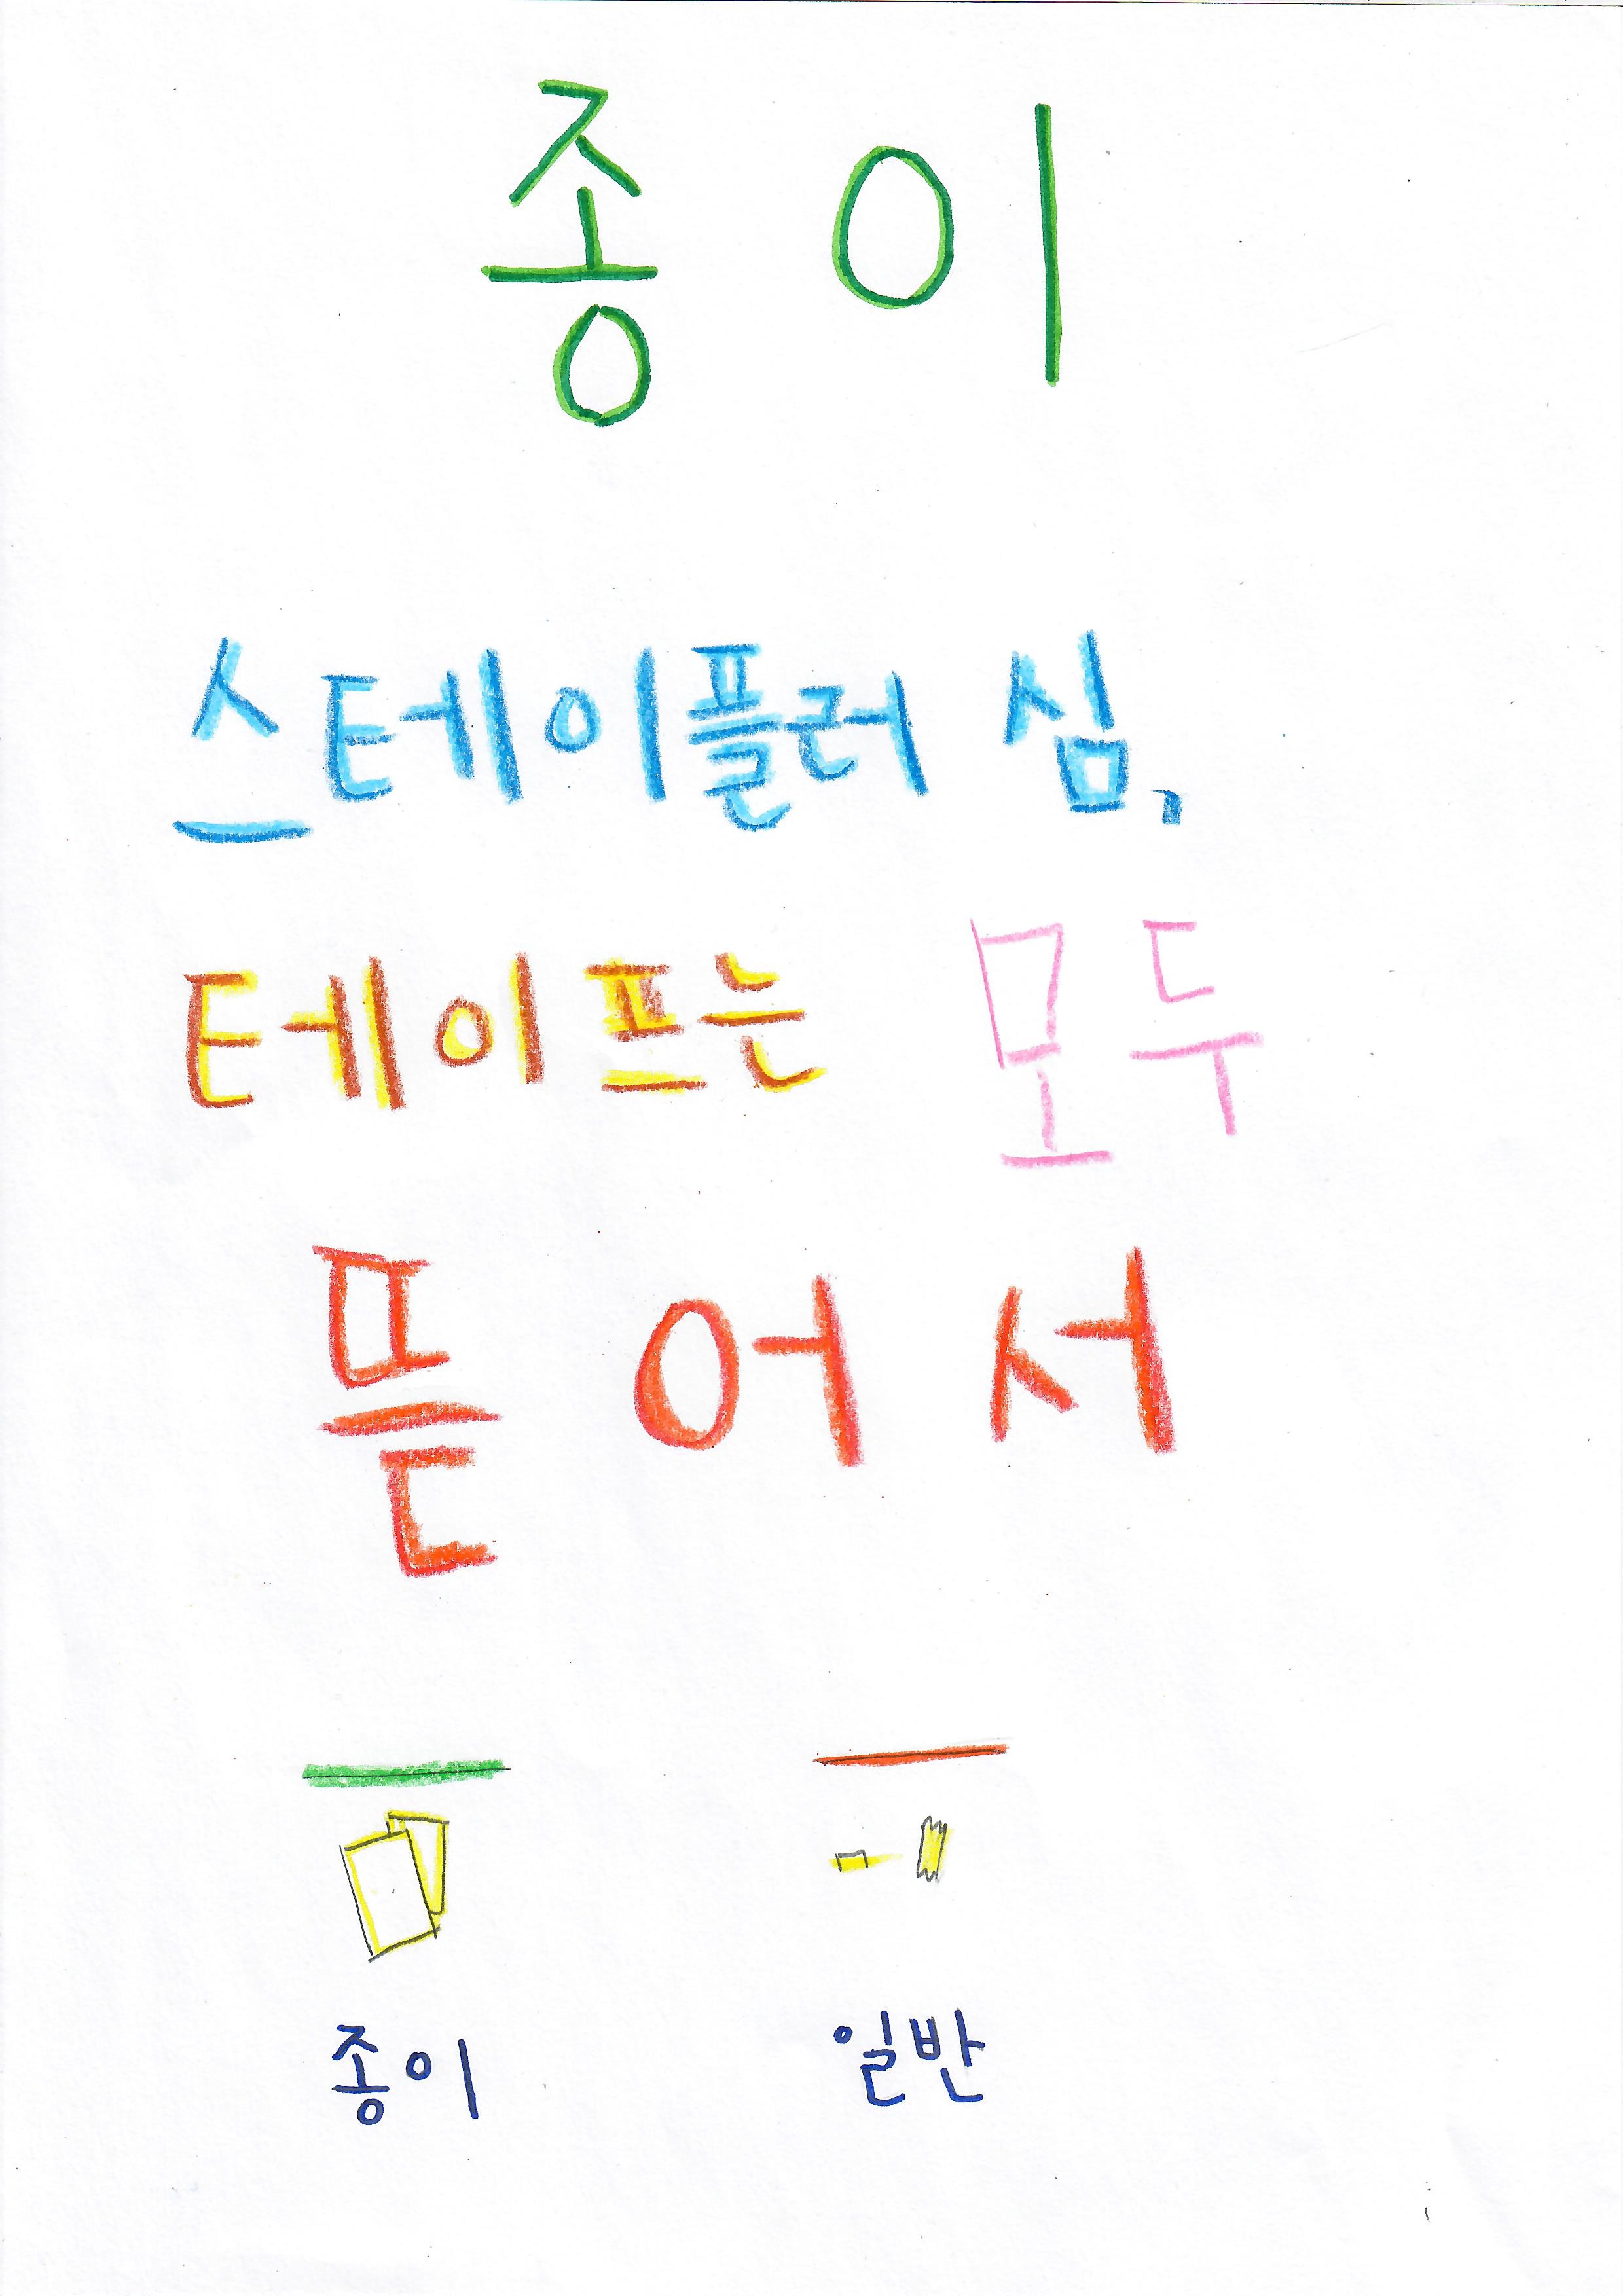 종이
스테이플러 심,
테이프는 모두
뜯어서
종이 일반